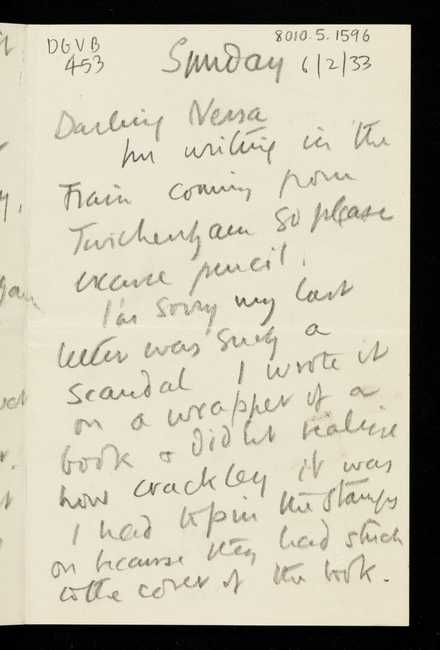 DGVB
453
8010.5.1596
Sunday 6/2/33
Darling Nessa
Im writing in the
Train coming from
Twickenham so please
excuse pencil.
I'm sorry my last
letter was such a
scandal I wrote it
on a wrapper of a
book & didnt realise
how crackley it was
I had to pin the stamps
on because they had stuck
to the cover of the book.